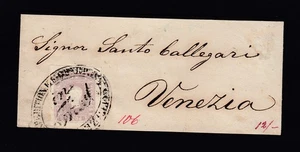 Signor Santo Callegari
Venezia
106
12/-